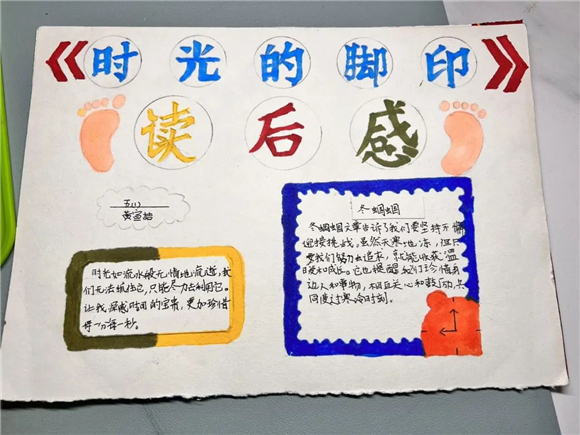 《时光的脚印》
读后感
五(1)
冬蝈蝈
冬蝈蝈文章告诉了我们要坚持不懈
迎接挑战,虽然天寒地冻,但只
要我们努力去追求,就能收获温
暖和成长。它也提醒我们珍惜身
边人和事物,相互关心和鼓励,共
同度过寒冷时刻。
时光如流水般无情地流逝,我
们无法抓住它,只能尽力去利用它。
让我深感时间的宝贵,更加珍惜
每一分每一秒。